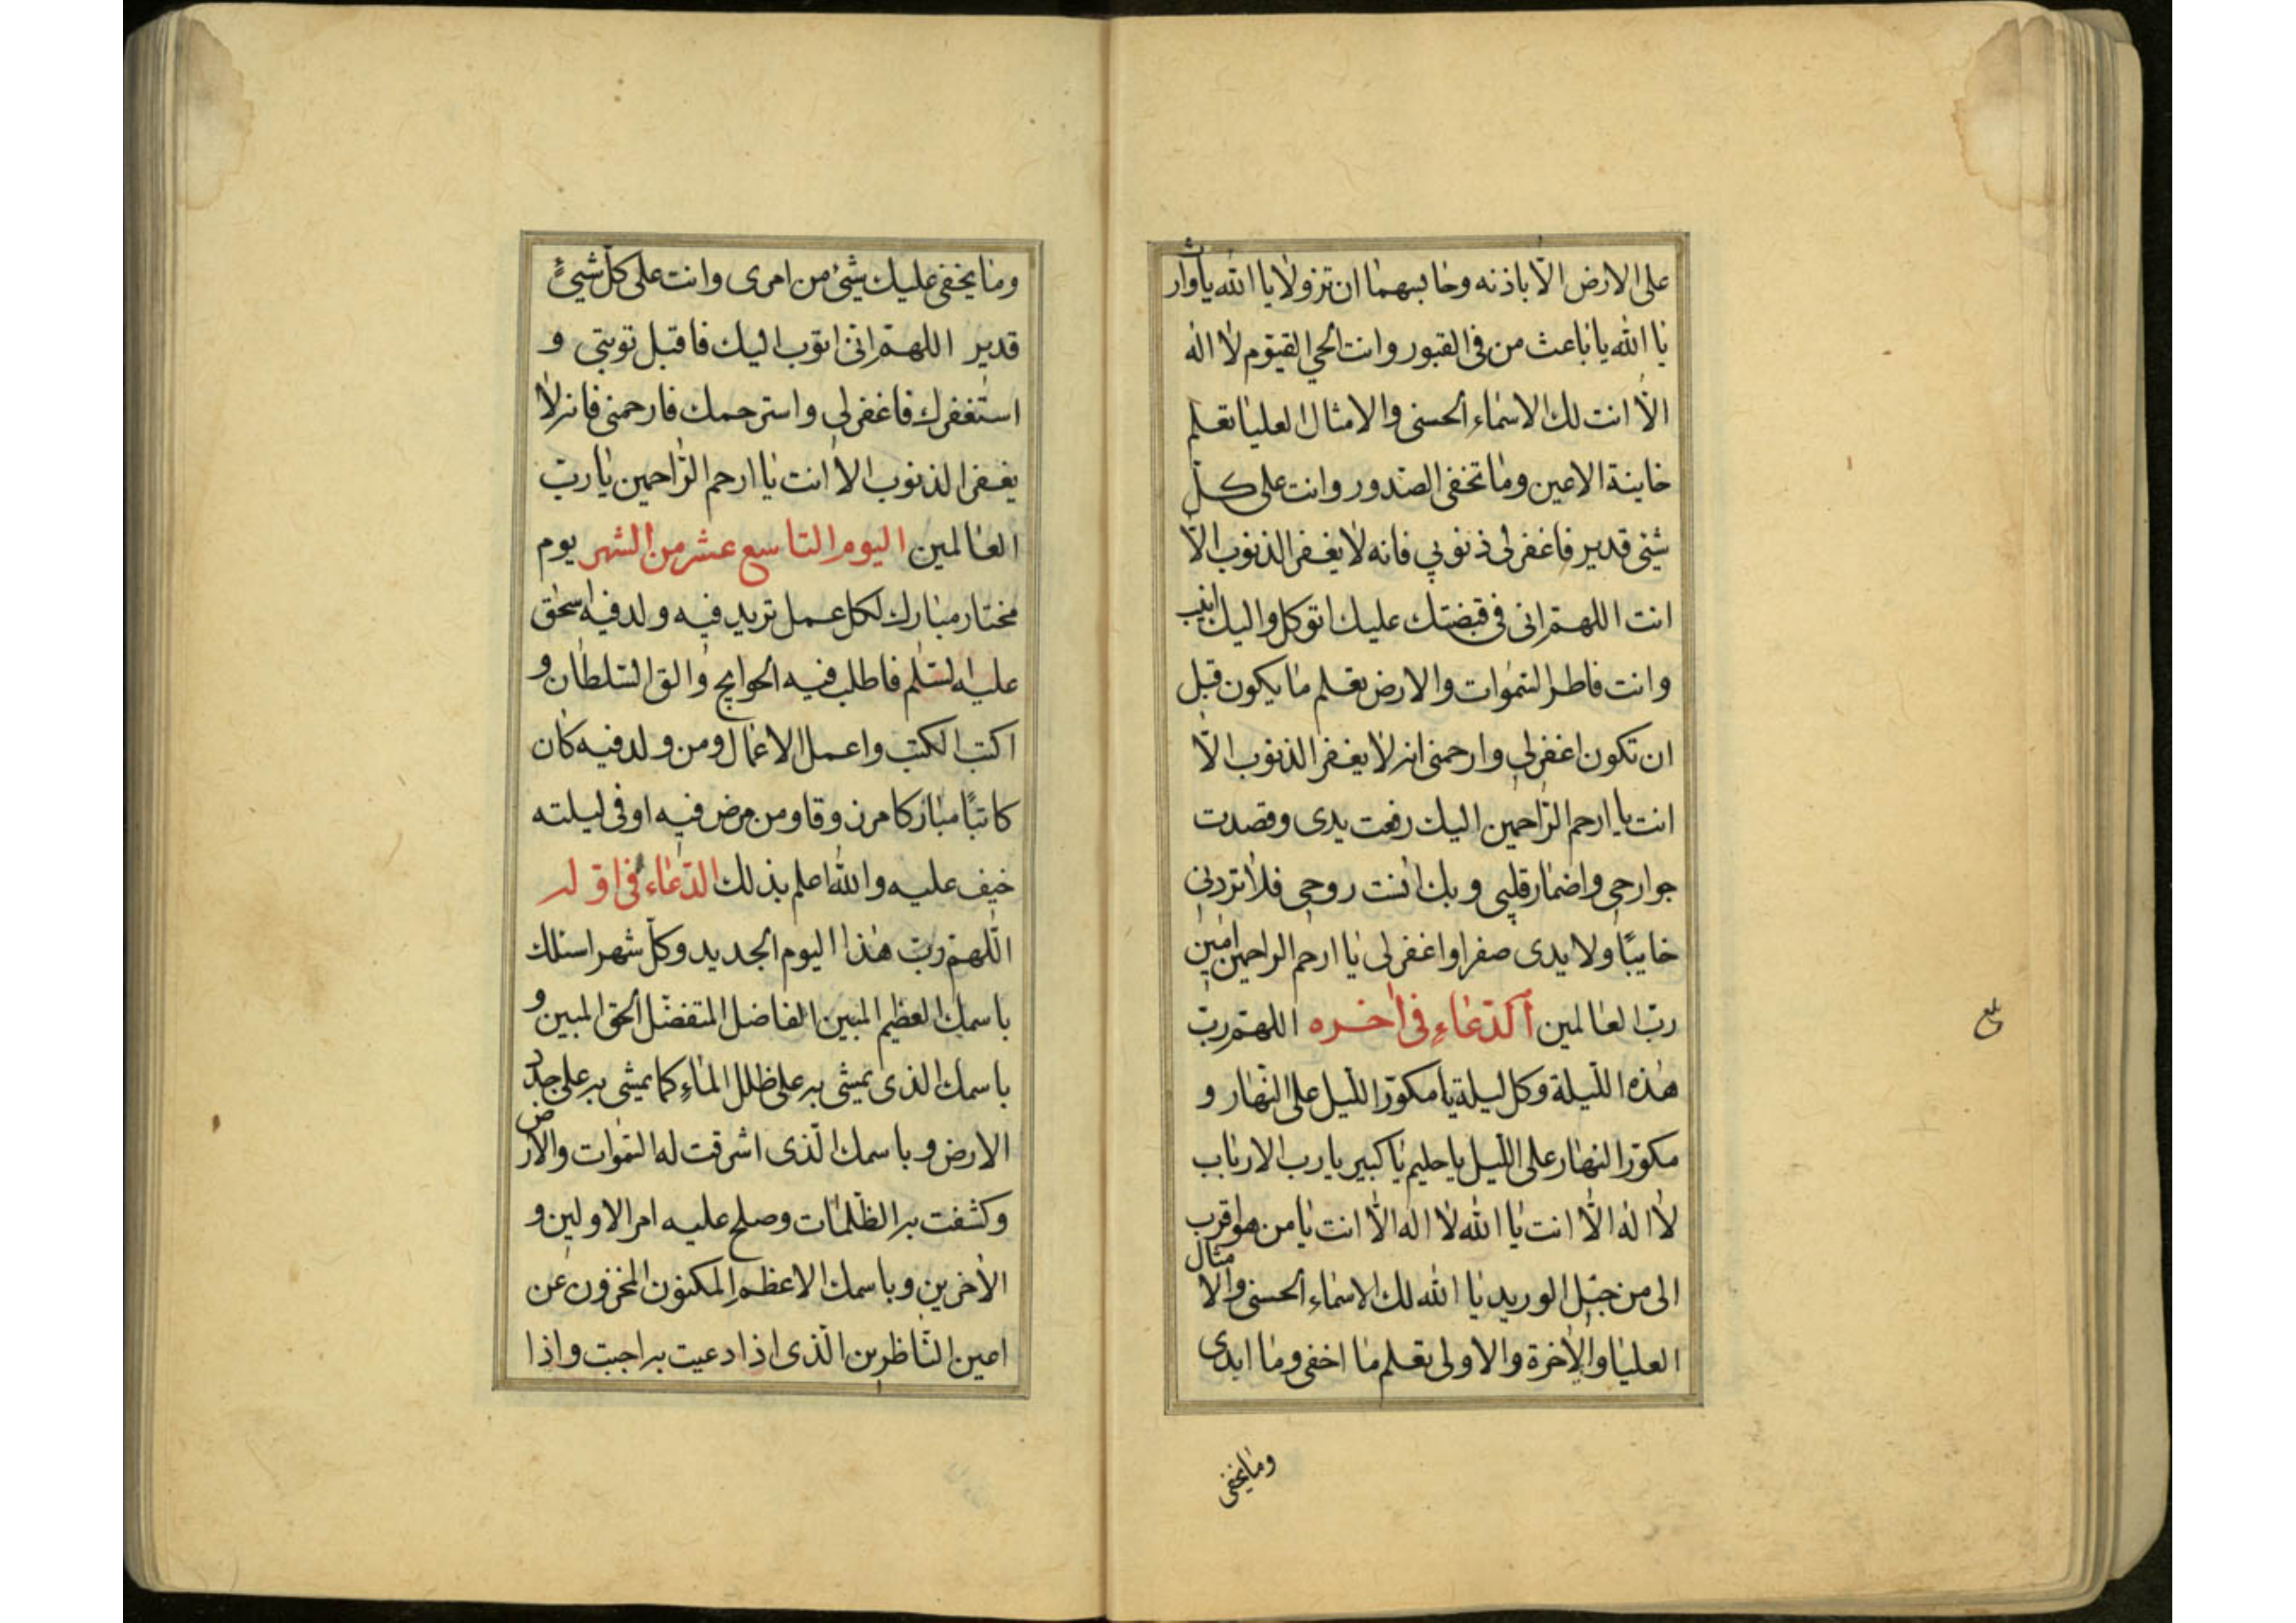 على الارض الّا باذنه وحابسهما ان تزولا يا الله يا وارث
يا الله يا باعث من فى القبور وانت الحي القيّوم لا اله
الّا انت لك الاسماء الحسنى والامثال العليا تعلم
خاينة الاعين وما تخفى الصّدور وانت على كلّ
شيئ قدير فاغفر لى ذنوبي فانه لا يغفر الذنوب الّا
انت اللهمّ انى فى قبضتك عليك اتوكل واليك انيب
وانت فاطر السّموات والارض تعلم ما يكون قبل
ان تكون اغفرلى وارحمنى انه لا يغفر الذنوب الّا
انت يا ارحم الرّاحمين اليك رفعت يدى وقصدت
جوارحى واضمار قلبى وبك انست روحى فلا تردنى
خايبًا ولا يدى صفرا واغفر لى يا ارحم الراحمين امين
ربّ العالمين الدّعاء فى اخره اللهمّ ربّ
هذه اللّيلة وكل ليلة يا مكوّر اللّيل على النّهار و
مكوّر النهار على اللّيل يا حليم يا كبير يا رب الارباب
لا اله الّا انت يا الله لا اله الّا انت يا من هو اقرب
الى من حبل الوريد يا الله لك الاسماء الحسنى والامثال
العليا والاخرة والاولى تعلم ما اخفى وما ابدى
وما يخفى
وما يخفى عليك شيئ من امرى وانت على كلّ شيئ
قدير اللهمّ انّى اتوب اليك فاقبل توبتى و
استغفرك فاغفرلى واسترحمك فارحمنى فانه لا
يغفر الذنوب الا انت يا ارحم الرّاحمين يا ربّ
العالمين اليوم التاسع عشر من الشهر يوم
مختار مبارك لكل عمل تريد فيه ولد فيه اسحق
عليه السّلم فاطلب فيه الحوايج والق السّلطان و
اكتب الكتب واعمل الاعمال ومن ولد فيه كان
كاتبًا مباركا مرزوقا ومن مرض فيه او فى ليلته
خيف عليه والله اعلم بذلك الدّعاء فى اوّله
اللهمّ ربّ هذا اليوم الجديد وكلّ شهر اسئلك
باسمك العظيم المبين الفاضل المتفضّل الحق المبين و
باسمك الذى يمشى به على ظلل الماء كما يمشى به على جدد
الارض وباسمك الّذى اشرقت له السّموات والارض
وكشفت به الظّلمات وصلح عليه امر الاولين و
الاخرين وباسمك الاعظم المكنون المخزون عن
اعين النّاظرين الّذى اذا دعيت به اجبت واذا